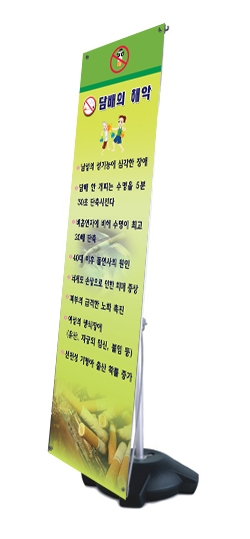 담배의 해악
남성의 성기능에 심각한 장애
담배 한 개피는 수명을 5분
30초 단축시킨다
비흡연자에 비해 수명이 최고
20배 단축
40대 이후 돌연사의 원인
뇌세포 손상으로 인한 치매 증상
피부의 급격한 노화 촉진
여성의 생식장애
(유산, 자궁외 임신, 불임 등)
선천성 기형아 출산 확률 증가